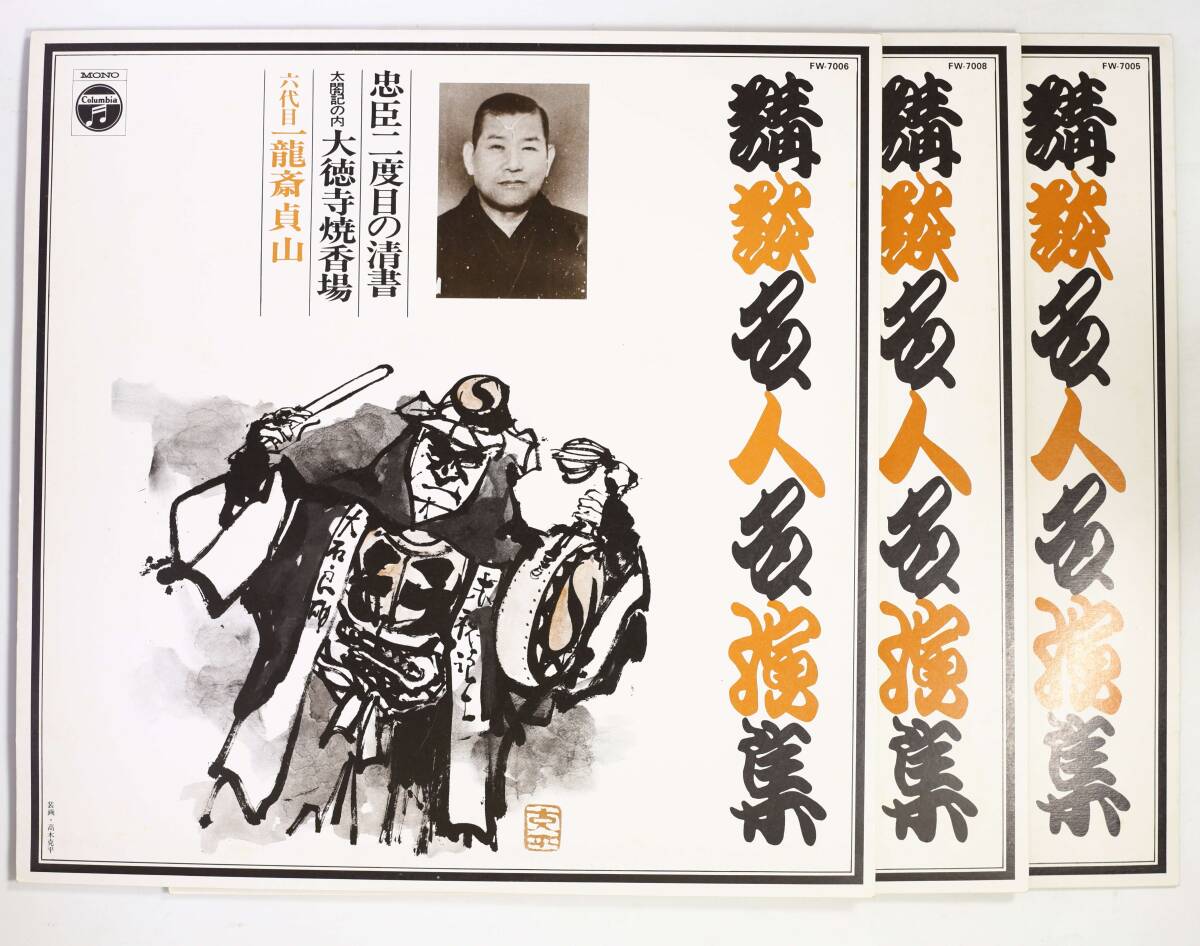 MONO
Columbia
FW-7006
講談名人名演集
忠臣二度目の清書
太閤記の内 大徳寺焼香場
六代目 一龍斎貞山
大石良雄
克平
装画・高木克平
FW-7008
講談名人名演集
FW-7005
講談名人名演集